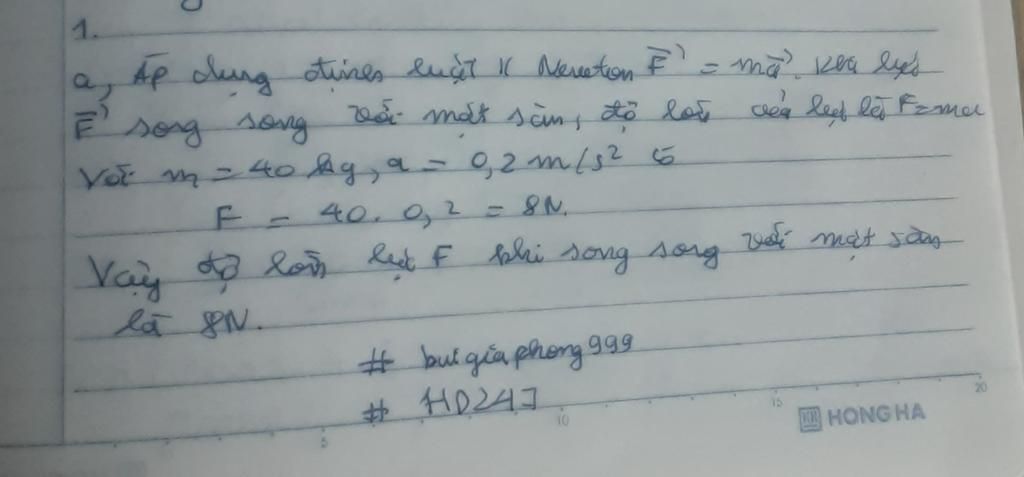 1.
a, Áp dụng định luật II Newton F = ma. Khi lực
F song song với mặt sàn, độ lớn của lực là F = ma
Với m = 40 kg, a = 0,2 m/s² có
F = 40. 0,2 = 8N.
Vậy độ lớn lực F khi song song với mặt sàn
là 8N.
# buigiaphong999
# HD247
5 10 15 20
HONG HA